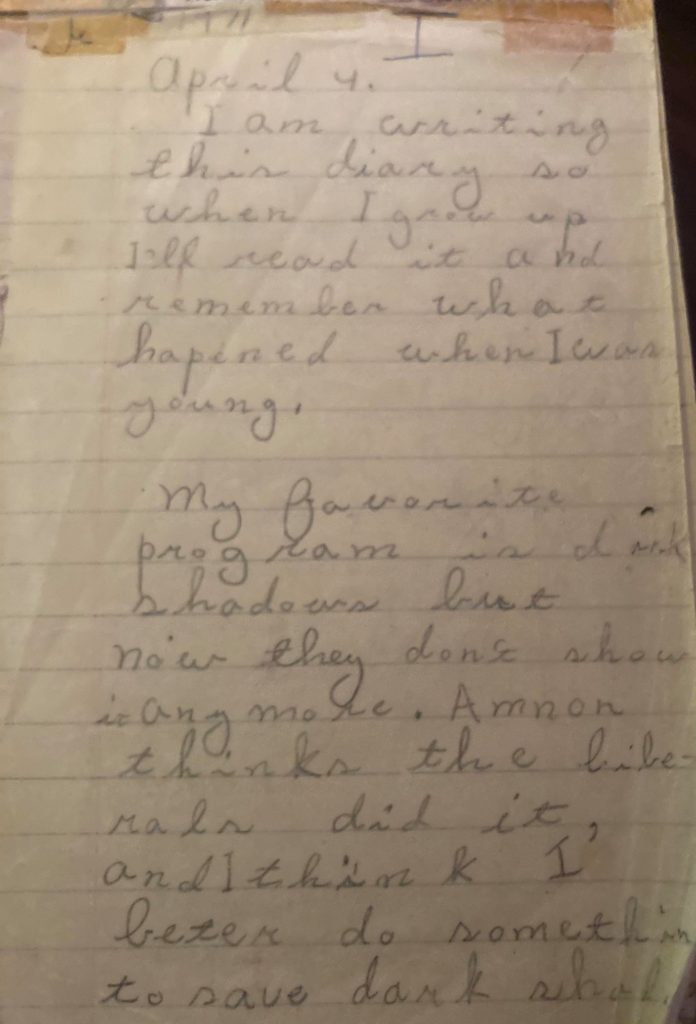 I
April 4.
I am writing
this diary so
when I grow up
I'll read it and
remember what
hapened when I was
young.
My favorite
program is dark
shadows but
now they dont show
it any more. Amnon
thinks the libe-
rals did it,
and I think I
beter do somethin
to save dark shad